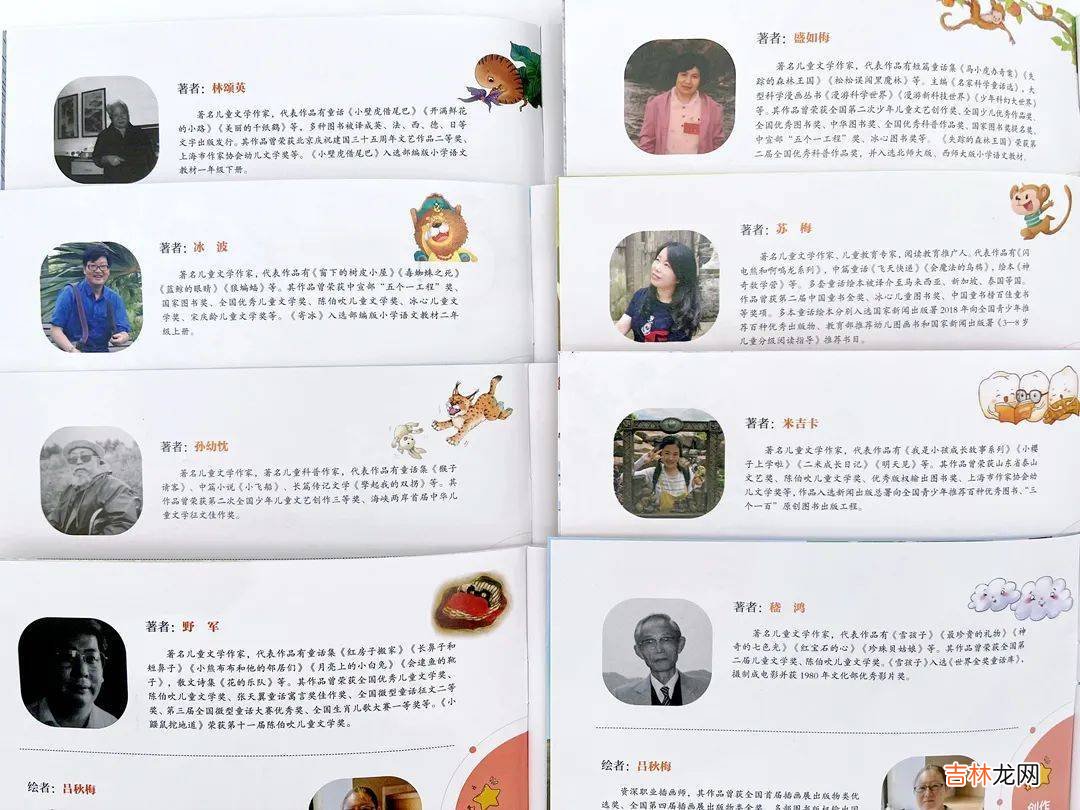 著者：林颂英
著名儿童文学作家，代表作品有童话《小壁虎借尾巴》《开满鲜花
的小路》《美丽的千纸鹤》等，多种图书被译成英、法、西、德、日等
文字出版发行。其作品曾荣获北京庆祝建国三十五周年文艺作品二等奖、
上海市作家协会幼儿文学奖等。《小壁虎借尾巴》入选部编版小学语文
教材一年级下册。
著者：冰 波
著名儿童文学作家，代表作品有《窗下的树皮小屋》《毒蜘蛛之死》
《蓝鲸的眼睛》《狼蝙蝠》等。其作品曾荣获中宣部“五个一工程”奖、
国家图书奖、全国优秀儿童文学奖、陈伯吹儿童文学奖、冰心儿童文
学奖、宋庆龄儿童文学奖等。《寄冰》入选部编版小学语文教材二年
级上册。
著者：孙幼忱
著名儿童文学作家，著名儿童科普作家，代表作品有童话集《猴子
请客》、中篇小说《小飞船》、长篇传记文学《擎起我的双拐》等。其
作品曾荣获第二次全国少年儿童文艺创作三等奖、海峡两岸首届中华儿
童文学征文佳作奖。
著者：野 军
著名儿童文学作家，代表作品有童话集《红房子搬家》《长鼻子和
短鼻子》《小熊布布和他的邻居们》《月亮上的小白兔》《会逮鱼的靴
子》，散文诗集《花的乐队》等。其作品曾荣获全国优秀儿童文学奖、
陈伯吹儿童文学奖、张天翼童话寓言奖佳作奖、全国微型童话征文二等
奖、第三届全国微型童话大赛优秀奖、全国生肖儿歌大赛一等奖等。《小
鼹鼠挖地道》荣获第十一届陈伯吹儿童文学奖。
绘者：吕秋梅
著者：盛如梅
著名儿童文学作家，代表作品有短篇童话集《马小虎办奇案》《失
踪的森林王国》《松松误闯黑魔林》等。主编《名家科学童话选》，大
型科学漫画丛书《漫游科学世界》《漫游新科技世界》《少年科幻大世界》
等。其作品曾荣获全国第二次少年儿童文艺创作奖、全国少儿优秀作品奖、
全国优秀图书奖、中华图书奖、全国优秀科普作品奖、国家图书奖提名奖、
中宣部“五个一工程”奖、冰心图书奖等。《失踪的森林王国》荣获第
二届全国优秀科普作品奖，并入选北师大版、西师大版小学语文教材。
著者：苏 梅
著名儿童文学作家、儿童教育专家，阅读教育推广人。代表作品有《闪
电熊和啊呜龙系列》，中篇童话《飞天快递》《会魔法的乌鸦》，绘本《神
奇数学营》等。多套童话绘本被译介至马来西亚、新加坡、泰国等国。
作品曾获第二届中国童书金奖、冰心儿童图书奖、中国童书榜百佳童书
等奖项。多本童话绘本分别入选国家新闻出版署2018年向全国青少年推
荐百种优秀出版物、教育部推荐幼儿图画书和国家新闻出版署《3—8岁
儿童分级阅读指导》推荐书目。
著者：米吉卡
著名儿童文学作家，代表作品有《我是小孩成长故事系列》《小樱
子上学啦》《二米成长日记》《明天见》等。其作品曾荣获山东省泰山
文艺奖、陈伯吹儿童文学奖、优秀版权输出图书奖、上海市作家协会幼
儿文学奖等，作品入选新闻出版总署向全国青少年推荐百种优秀图书、“三
个一百”原创图书出版工程。
著者：嵇 鸿
著名儿童文学作家，代表作品有《雪孩子》《最珍贵的礼物》《神
奇的七色光》《红宝石的心》《珍珠贝姑娘》等。其作品曾荣获全国第
二届儿童文学奖、陈伯吹儿童文学奖。《雪孩子》入选《世界金奖童话库》，
摄制成电影并获1980年文化部优秀影片奖。
绘者：吕秋梅
资深职业插画师，其作品曾获全国首届插画展出版物类优
选奖、全国第四届插画展出版物类金奖，多部图书版权输出国
创作
吉林龙网